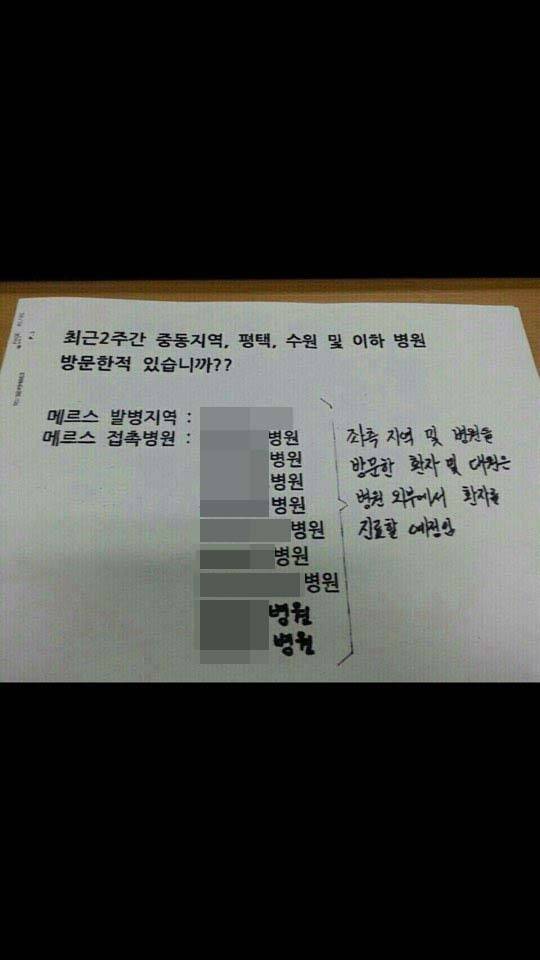 최근2주간 중동지역, 평택, 수원 및 이하 병원
방문한적 있습니까??
메르스 발병지역 :
메르스 접촉병원 : 병원
병원
병원
병원
병원
병원
병원
병원
병원
좌측 지역 및 병원을
방문한 환자 및 대원은
병원 외부에서 환자를
진료할 예정임